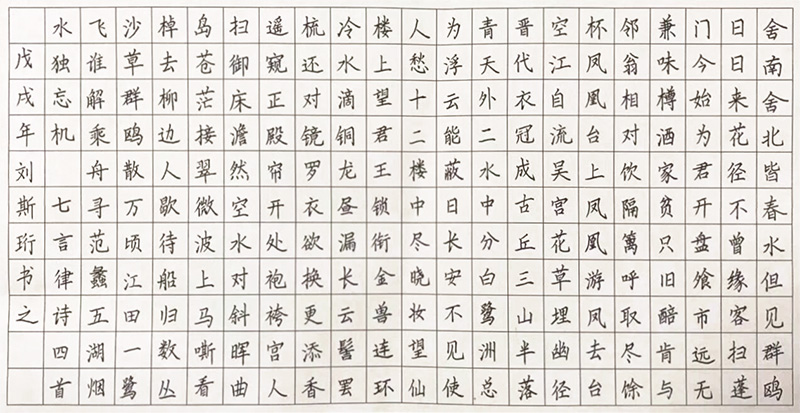 舍南舍北皆春水但见群鸥
日日来花径不曾缘客扫蓬
门今始为君开盘飧市远无
兼味樽酒家贫只旧醅肯与
邻翁相对饮隔篱呼取尽馀
杯凤凰台上凤凰游凤去台
空江自流吴宫花草埋幽径
晋代衣冠成古丘三山半落
青天外二水中分白鹭洲总
为浮云能蔽日长安不见使
人愁十二楼中尽晓妆望仙
楼上望君王锁衔金兽连环
冷水滴铜龙昼漏长云髻罢
梳还对镜罗衣欲换更添香
遥窥正殿帘开处袍袴宫人
扫御床澹然空水对斜晖曲
岛苍茫接翠微波上马嘶看
棹去柳边人歇待船归数丛
沙草群鸥散万顷江田一鹭
飞谁解乘舟寻范蠡五湖烟
水独忘机 七言律诗四首
戊戌年刘斯珩书之